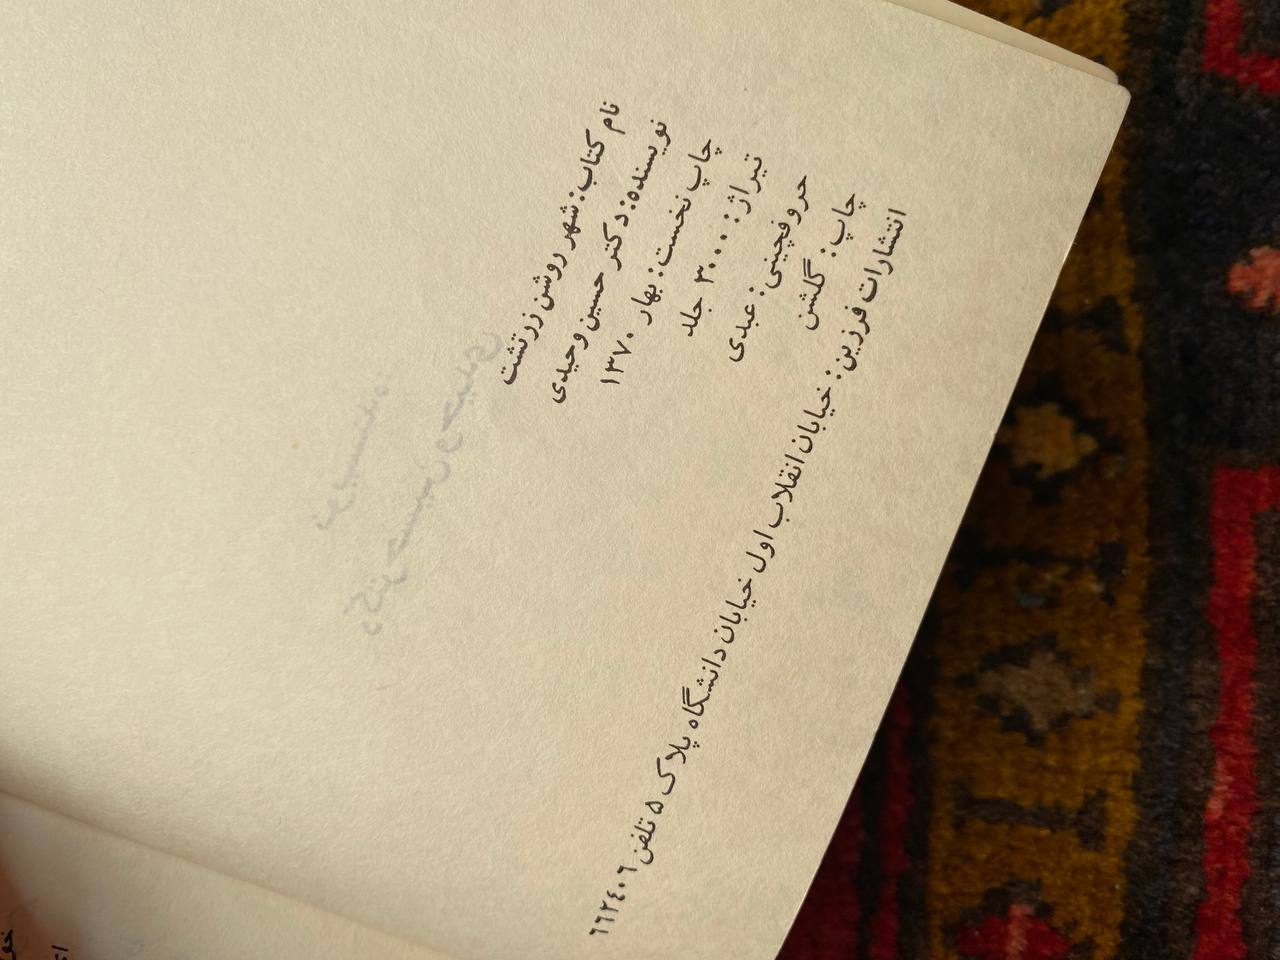 نام کتاب: شهر روشن زرتشت
نویسنده: دکتر حسین وحیدی
چاپ نخست: بهار ۱۳۷۰
تیراژ: ۳۰۰۰ جلد
حروفچینی: عبدی
چاپ: گلشن
انتشارات فرزین: خیابان انقلاب اول خیابان دانشگاه پلاک ۵ تلفن ۶۶۲۴۰۶
نویسنده:
دکتر حسین وحیدی